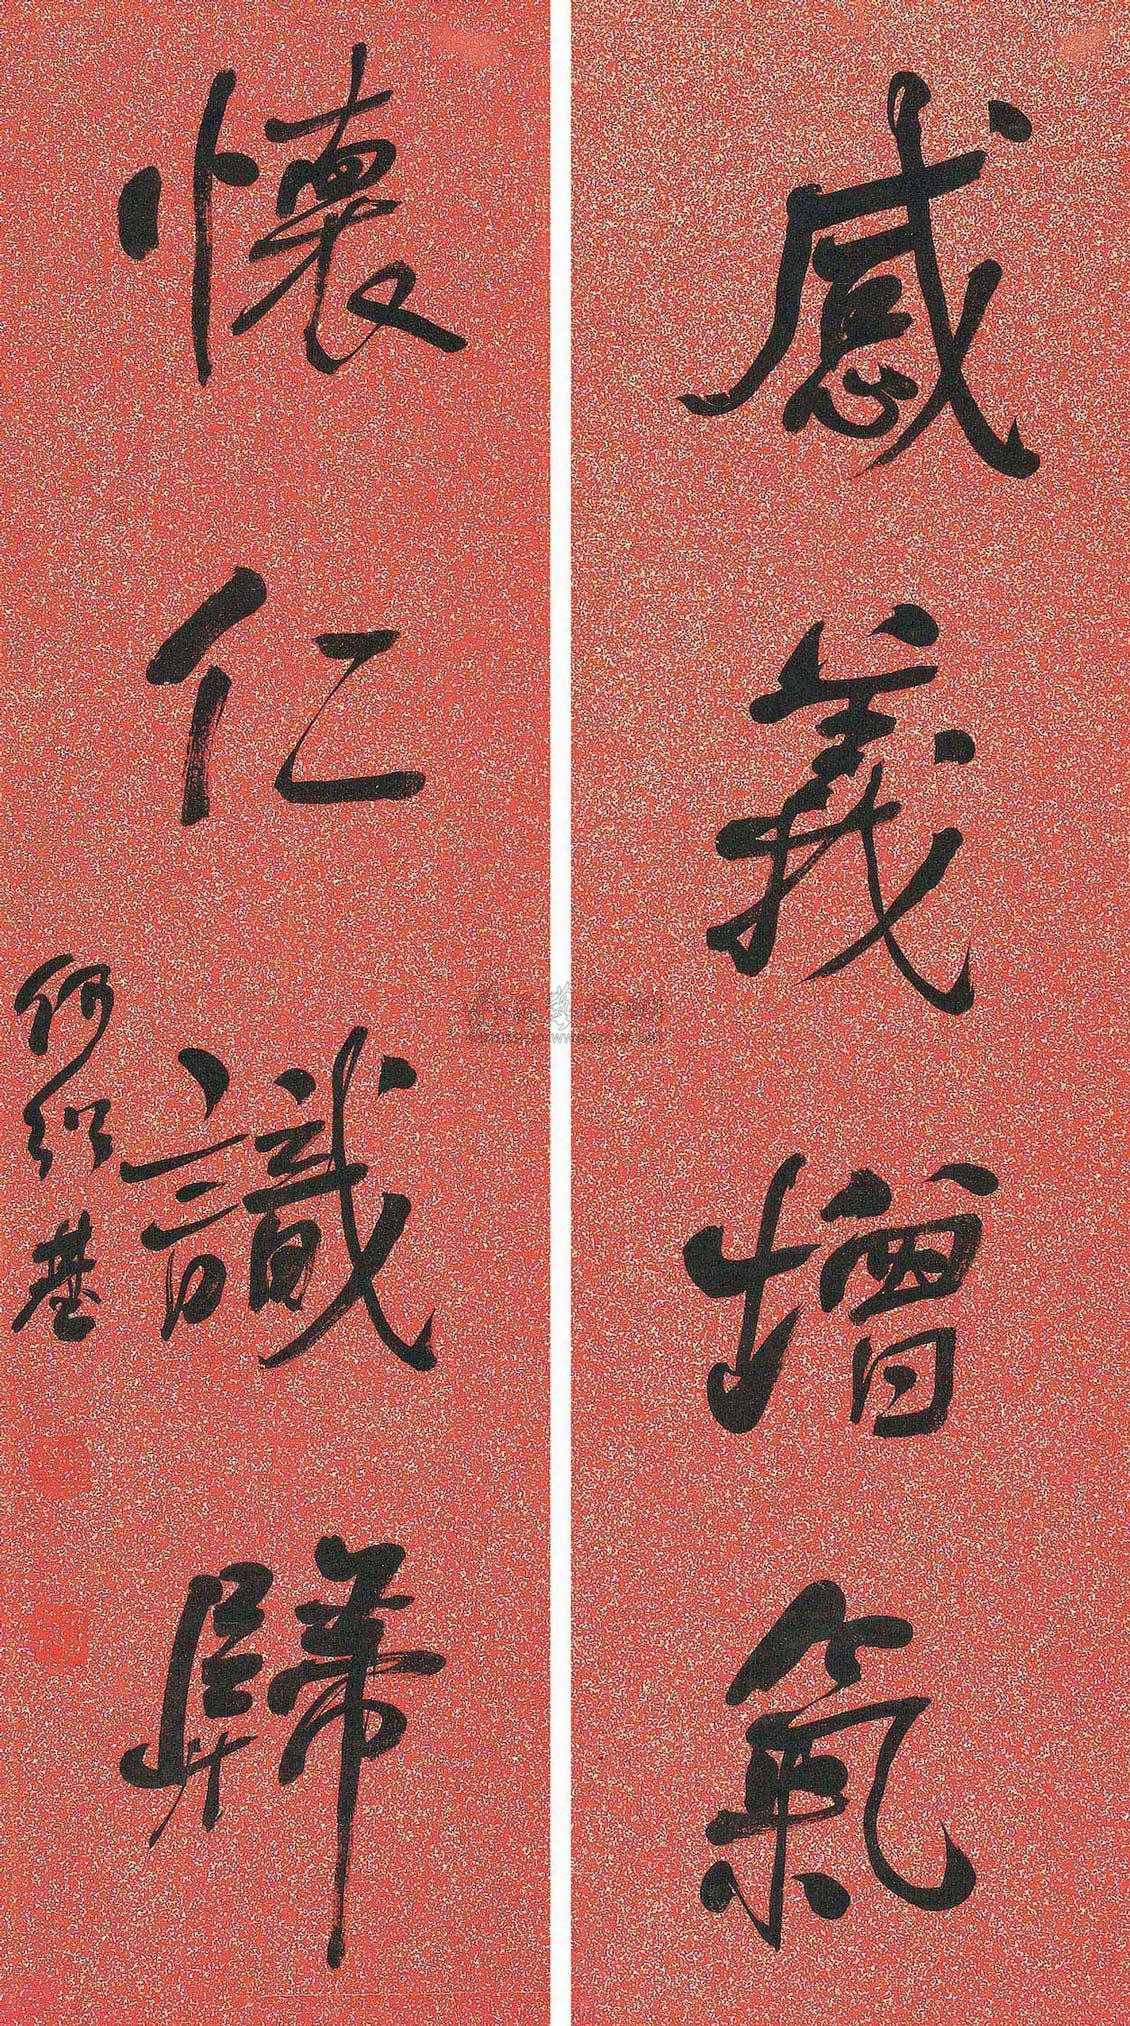 感義增氣
懷仁識歸
何紹基